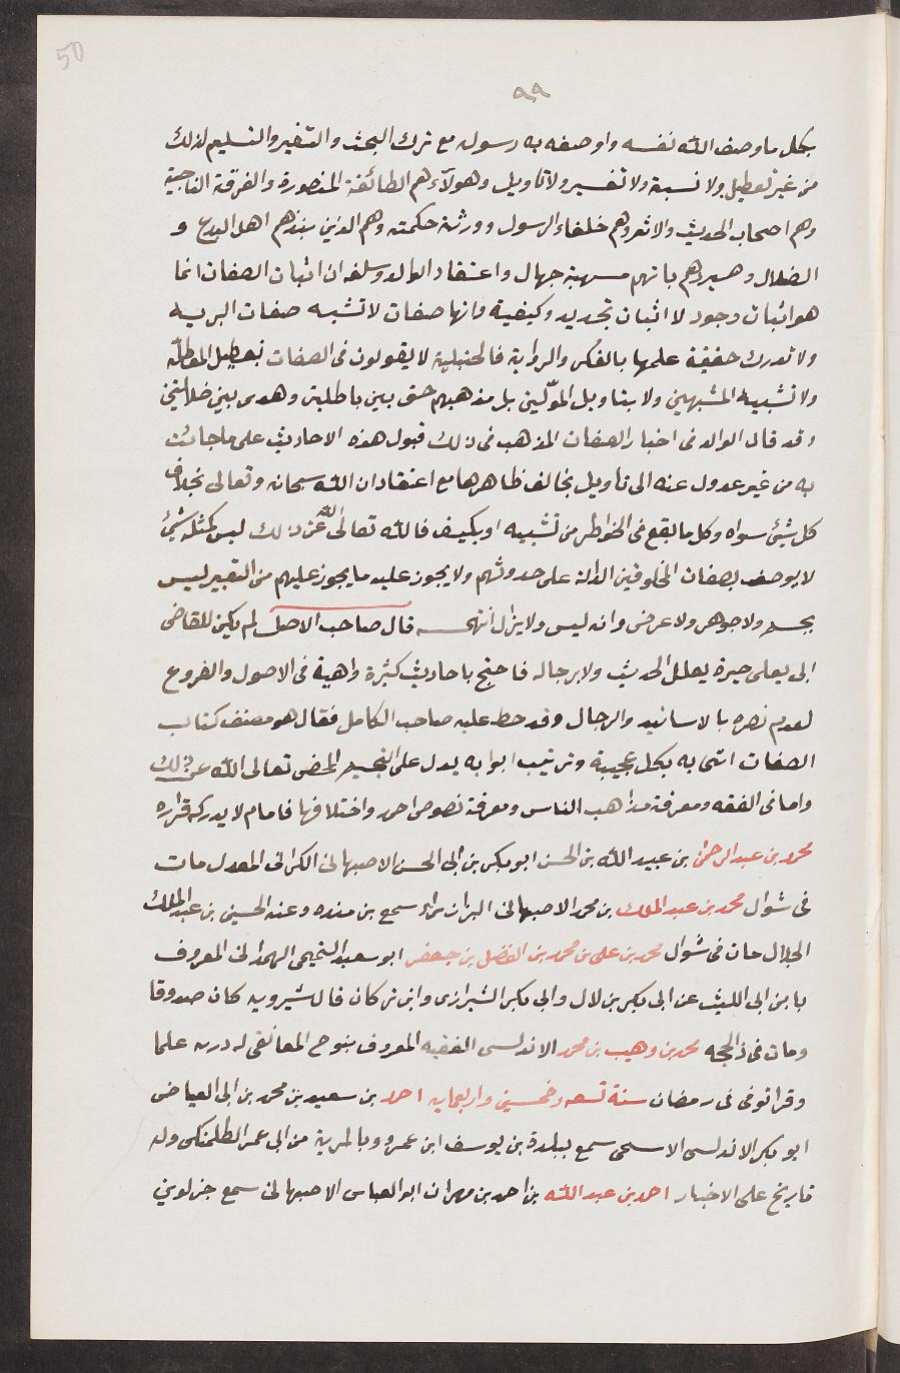 50
٩٩
بكل ما وصف الله نفسه واوصفه به رسوله مع ترك البحث والتنقير والتسليم لذلك
من غير تعطيل ولا نسبة ولا تفسير ولا تاويل وهولاء هم الطائفة المنصورة والفرقة الناجية
وهم اصحاب الحديث والاثر وهم خلفاء الرسول وورثة حكمته وهم الذين نبذهم اهل البدع و
الضلال بانهم مشبهة جهال واعتقاد الوالد وسلفه ان اثبات الصفات انما
هو اثبات وجود لا اثبات تحديد وكيفية وانها صفات لا تشبه صفات البريه
ولا تدرك حقيقة علمها بالفكر والرواية فالحنبلية لا يقولون فى الصفات بتعطيل المعطلة
ولا تشبيه المشبهين ولا بتاويل الموّلين بل مذهبهم حق بين باطلين وهدى بين ضلالتين
وقد قال الوالد فى اخبار الصفات المذهب فى ذلك قبول هذه الاحاديث على ما جائت
به من غير عدول عنه الى تاويل يخالف ظاهرها مع اعتقاد ان الله سبحانه وتعالى بخلاف
كل شئ سواه وكل ما يقع فى الخواطر من تشبيه او بكيف فالله تعالى عن ذلك ليس كمثله شئ
لا يوصف بصفات المخلوقين الدالة على حدوثهم ولا يجوز عليه ما يجوز عليهم من التغير ليس
بجسم ولا جوهر ولا عرض وانه ليس ولا يزال انتهى قال صاحب الاصل لم يكن للقاضى
ابى يعلى خبرة بعلل الحديث ولا برجاله فاحتج باحاديث كثرة واهية فى الاصول والفروع
لعدم نصره بالاسانيد والرجال وقد حط عليه صاحب الكامل فقال هو مصنف كتاب
الصفات اتى به بكل عجيبة وترتيب ابوابه يدل على التجسيم المحض تعالى الله عن ذلك
واما فى الفقه ومعرفة مذاهب الناس ومعرفة نصوص احمد واختلافها فامام لا يدرك قراره
محمد بن عبد الرحمن بن عبيد الله بن الحسن ابو بكر بن ابى الحسن الاصبهانى الكرانى المعدل مات
فى شوال محمد بن عبد الملك بن محمد الاصبهانى البزاز سمع بن منده وعنه الحسين بن عبد الملك
الخلال مات فى شوال محمد بن على بن محمد بن الفضل بن جعفر ابو سعد التميمى الهمذانى المعروف
بابن ابى الليث عن ابى بكر بن لال وابى بكر الشيرازى وابن تركان قال شيرويه كان صدوقا
ومات فى ذالحجه محمد بن وهيب بن محمد الاندلسى الفقيه المعروف بنوح لقى له درس علما
وقرا توفى فى رمضان سنة تسعه وخمسين واربعمايه احمد بن سعيد بن محمد بن ابى العياض
ابو بكر الاندلسى سمع ببلدة بن يوسف ابن عمرو وبالمرية من ابى عمر الطلمنكى وله
تاريخ على الاخبار احمد بن عبد الله بن احمد بن مهران ابو العباس الاصبهانى سمع جز لوين